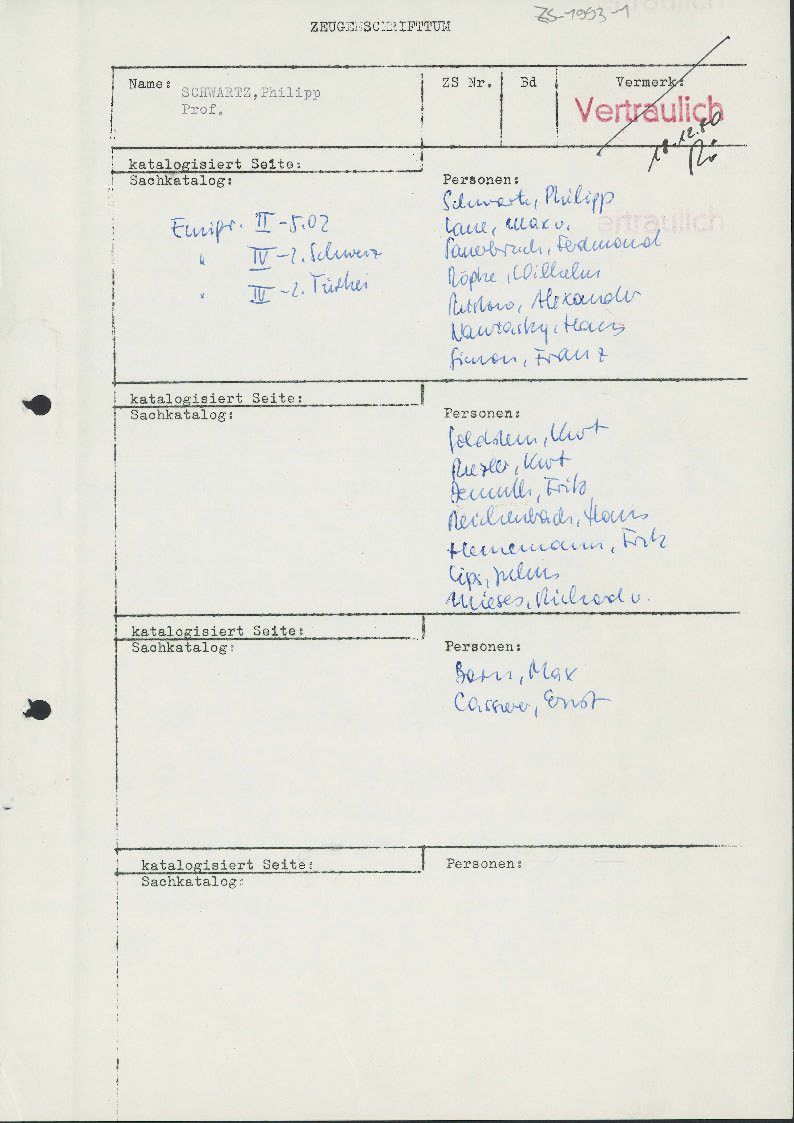 ZS-1993-1
ZEUGENSCHRIFTTUM
Name: SCHWARTZ, Philipp
Prof.
ZS Nr.
Bd
Vermerk:
Vertraulich
18.12.80
Rö
katalogisiert Seite:
Sachkatalog:
Emigr. II -5.02
" IV -2. Schweiz
" IV -2. Türkei
Personen:
Schwartz, Philipp
Laue, Max v.
Sauerbruch, Ferdinand
Röpke, Wilhelm
Rüstow, Alexander
Nawiasky, Hans
Simon, Franz
katalogisiert Seite:
Sachkatalog:
Personen:
Goldstein, Kurt
Riezler, Kurt
Demuth, Fritz
Reichenbach, Hans
Heinemann, Fritz
Lips, Julius
Mieses, Richard v.
katalogisiert Seite:
Sachkatalog:
Personen:
Born, Max
Cassirer, Ernst
katalogisiert Seite:
Sachkatalog:
Personen: